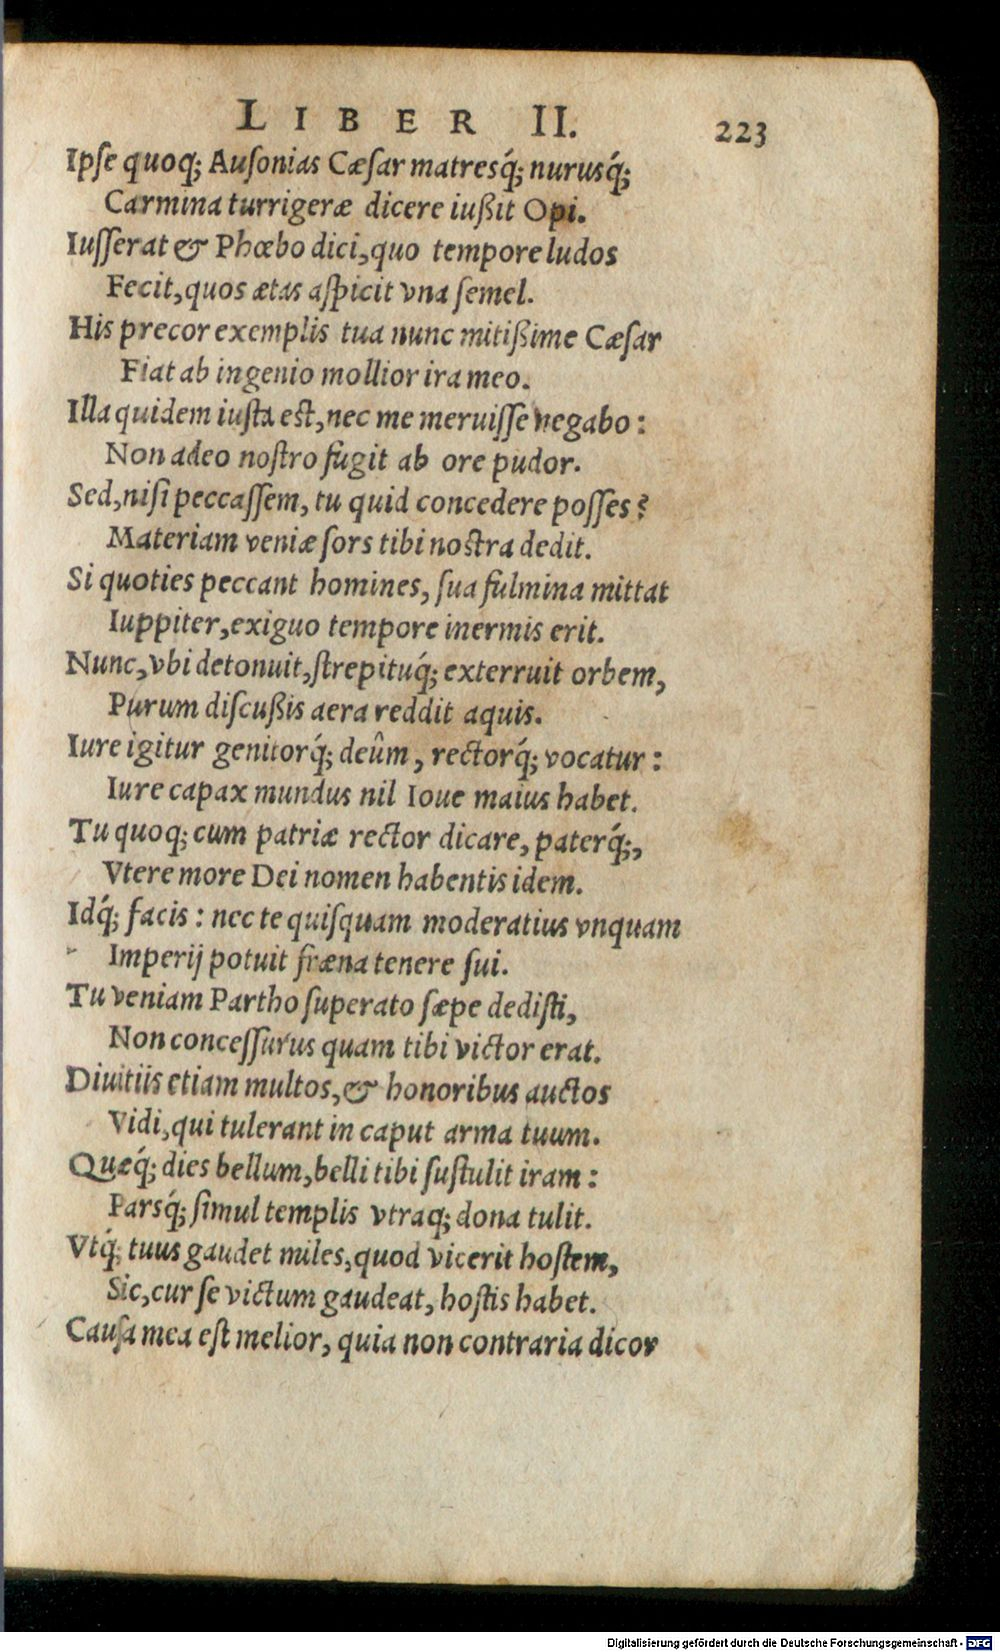 LIBER II. 223
Ipſe quoq; Auſonias Cæſar matresq́; nurusq́;
Carmina turrigeræ dicere iußit Opi.
Iuſſerat & Phœbo dici, quo tempore ludos
Fecit, quos ætas aſpicit vna ſemel.
His precor exemplis tua nunc mitißime Cæſar
Fiat ab ingenio mollior ira meo.
Illa quidem iuſta eſt, nec me meruiſſe negabo:
Non adeo noſtro fugit ab ore pudor.
Sed, niſi peccaſſem, tu quid concedere poſſes?
Materiam veniæ ſors tibi noſtra dedit.
Si quoties peccant homines, ſua fulmina mittat
Iuppiter, exiguo tempore inermis erit.
Nunc, vbi detonuit, ſtrepituq́; exterruit orbem,
Purum diſcußis aera reddit aquis.
Iure igitur genitorq́; deûm, rectorq́; vocatur:
Iure capax mundus nil Ioue maius habet.
Tu quoq; cum patriæ rector dicare, paterq́;,
Vtere more Dei nomen habentis idem.
Idq́; facis: nec te quiſquam moderatius vnquam
Imperij potuit fræna tenere ſui.
Tu veniam Partho ſuperato ſæpe dediſti,
Non conceſſurus quam tibi victor erat.
Diuitiis etiam multos, & honoribus auctos
Vidi, qui tulerant in caput arma tuum.
Quæq́; dies bellum, belli tibi ſuſtulit iram:
Parsq́; ſimul templis vtraq; dona tulit.
Vtq́; tuus gaudet miles, quod vicerit hoſtem,
Sic, cur ſe victum gaudeat, hoſtis habet.
Cauſa mea eſt melior, quia non contraria dicor
Digitalisierung gefördert durch die Deutsche Forschungsgemeinschaft - DFG